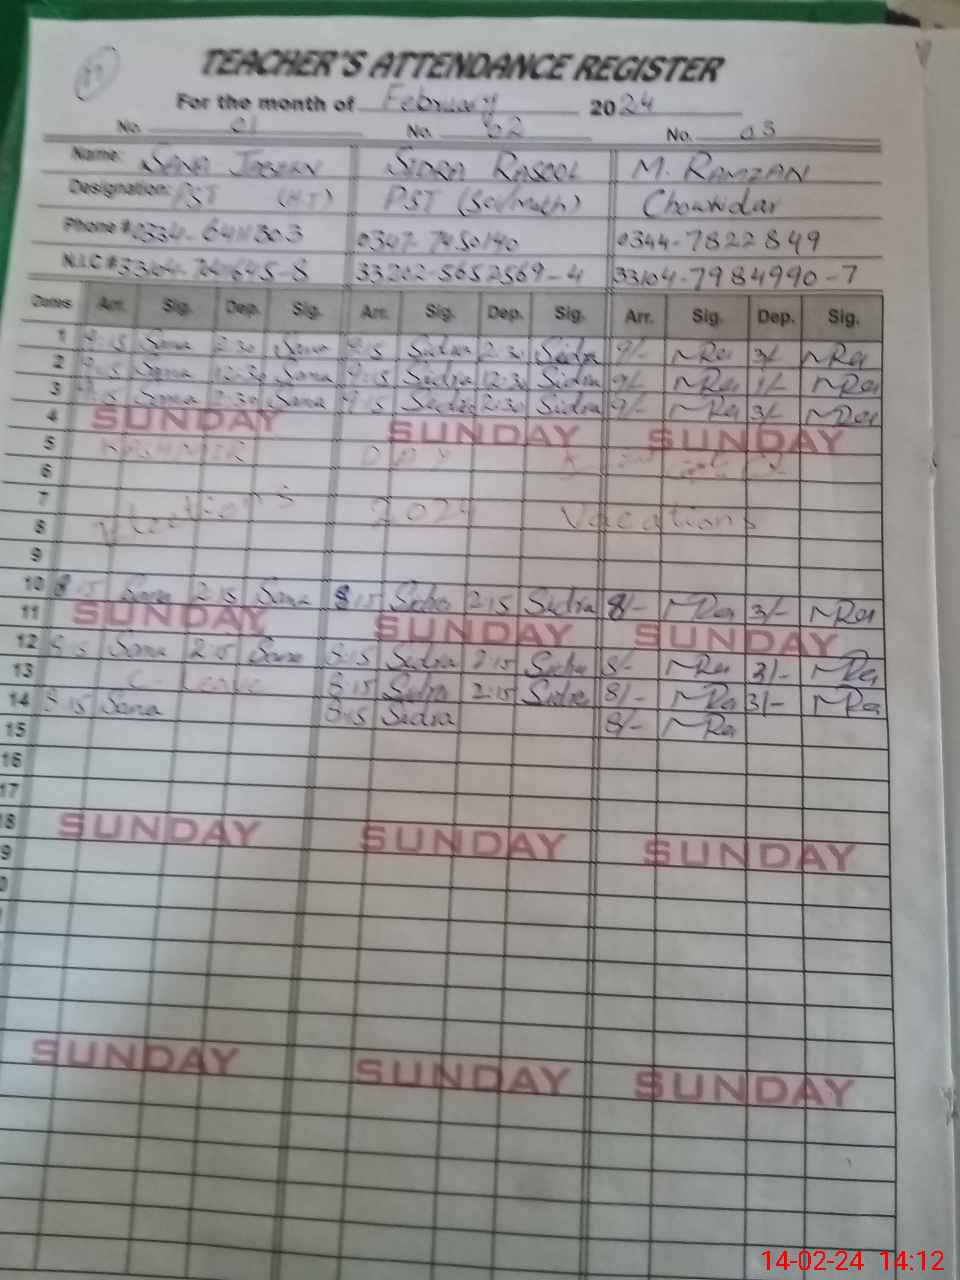 TEACHER'S ATTENDANCE REGISTER
For the month of February 2024
No. 01 No. 02 No. 03
Name: SANA SIDRA RASOOL M. RAMZAN
Designation: PST (H.T) PST (Sc/math) Chowkidar
Phone # 0334-6411303 0347-7450140 0344-7822849
N.I.C # 33202-5652569-4 33104-7984990-7
Dates Arr. Sig. Dep. Sig. Arr. Sig. Dep. Sig. Arr. Sig. Dep. Sig.
1 9:15 Sana 2:30 Sana 9:15 Sidra 2:30 Sidra 9/- MRa 3/- MRa
2 9:15 Sana 12:30 Sana 9:15 Sidra 12:30 Sidra 9/- MRa 1/- MRa
3 9:15 Sana 2:30 Sana 9:15 Sidra 2:30 Sidra 9/- MRa 3/- MRa
4 SUNDAY SUNDAY SUNDAY
5 KASHMIR DAY
6
7 2024 Vacations
8
9
10 8:15 Sana 2:15 Sana 8:15 Sidra 2:15 Sidra 8/- MRa 3/- MRa
11 SUNDAY SUNDAY SUNDAY
12 8:15 Sana 2:15 Sana 8:15 Sidra 2:15 Sidra 8/- MRa 3/- MRa
13 C-Leave 8:15 Sidra 2:15 Sidra 8/- MRa 3/- MRa
14 8:15 Sana 8:15 Sidra 8/- MRa
15
16
17
18 SUNDAY SUNDAY SUNDAY
9
SUNDAY SUNDAY SUNDAY
14-02-24 14:12